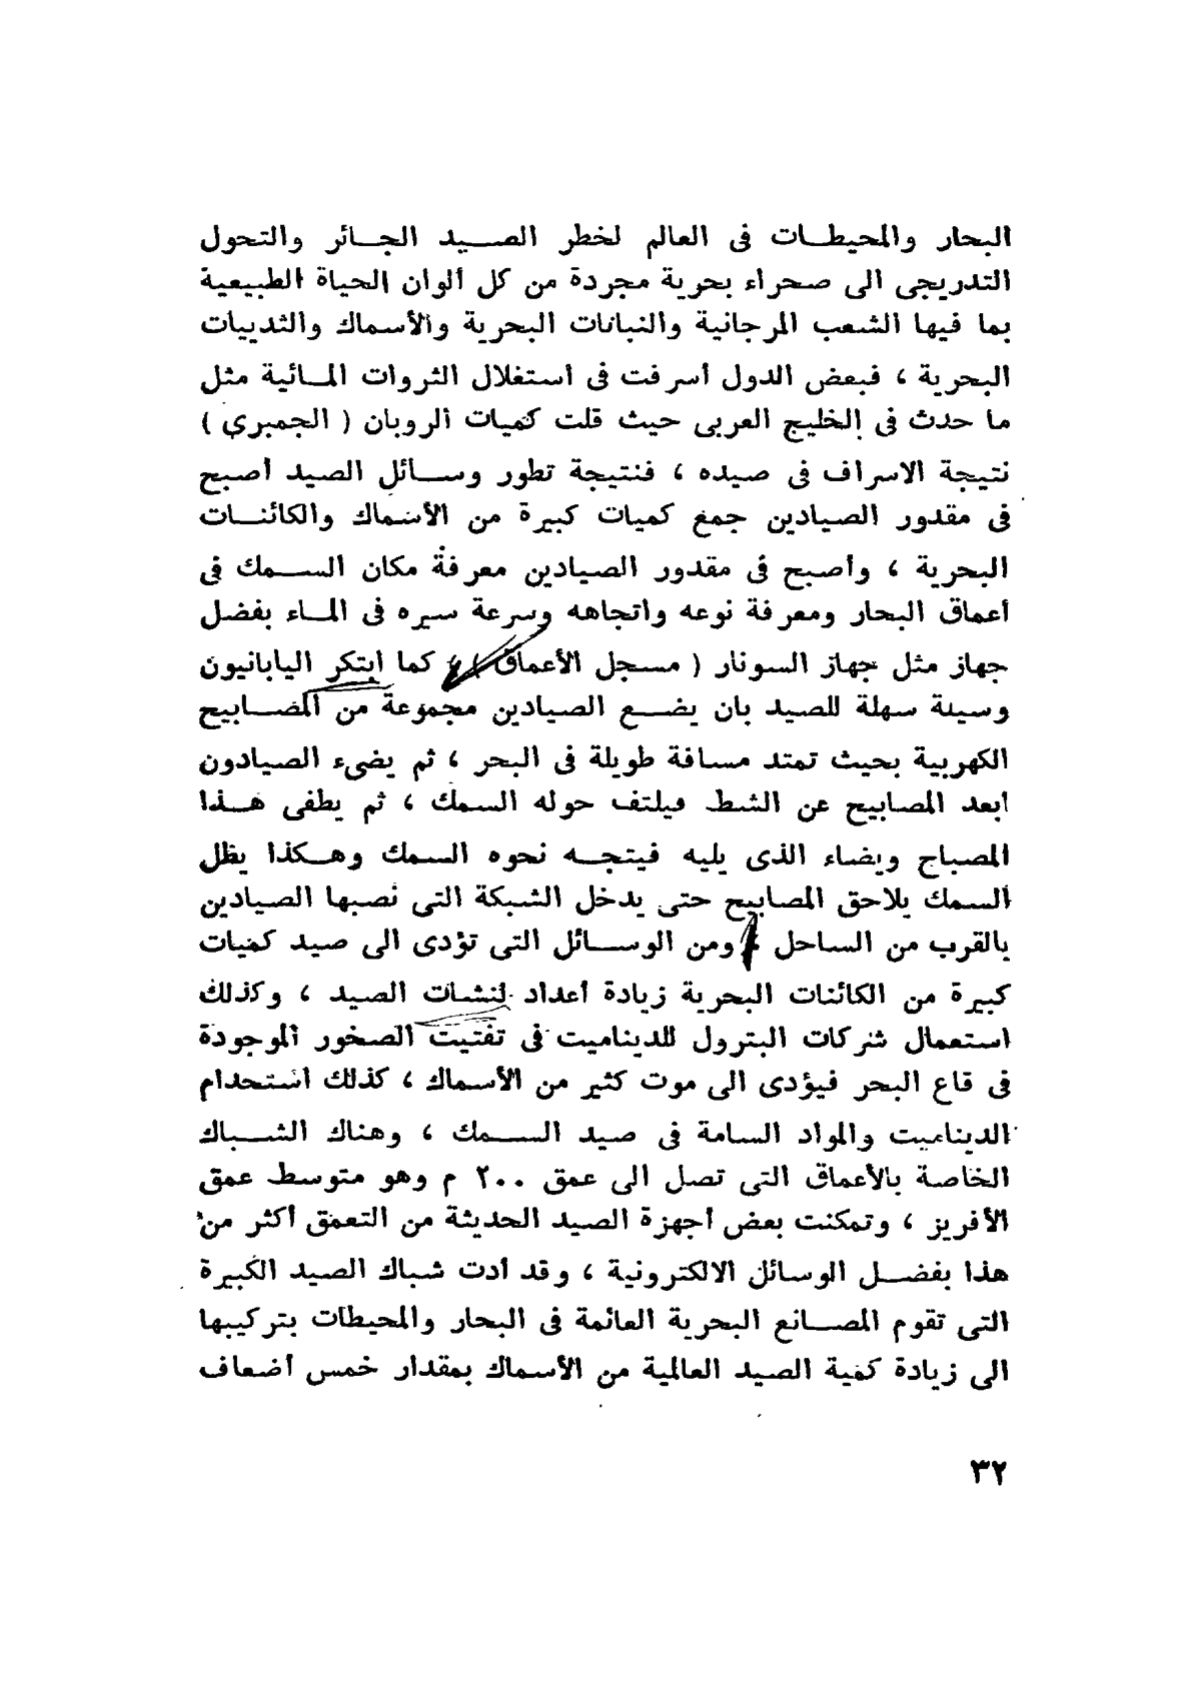 البحار والمحيطات فى العالم لخطر الصيد الجائر والتحول
التدريجى الى صحراء بحرية مجردة من كل ألوان الحياة الطبيعية
بما فيها الشعب المرجانية والنباتات البحرية والأسماك والثدييات
البحرية ، فبعض الدول أسرفت فى استغلال الثروات المائية مثل
ما حدث فى الخليج العربى حيث قلت كميات الروبان ( الجمبرى )
نتيجة الاسراف فى صيده ، فنتيجة تطور وسائل الصيد أصبح
فى مقدور الصيادين جمع كميات كبيرة من الأسماك والكائنات
البحرية ، وأصبح فى مقدور الصيادين معرفة مكان السمك فى
أعماق البحار ومعرفة نوعه واتجاهه وسرعة سيره فى الماء بفضل
جهاز مثل جهاز السونار ( مسجل الأعماق ) ، كما ابتكر اليابانيون
وسيلة سهلة للصيد بان يضع الصيادين مجموعة من المصابيح
الكهربية بحيث تمتد مسافة طويلة فى البحر ، ثم يضىء الصيادون
ابعد المصابيح عن الشط فيلتف حوله السمك ، ثم يطفى هذا
المصباح ويضاء الذى يليه فيتجه نحوه السمك وهكذا يظل
السمك يلاحق المصابيح حتى يدخل الشبكة التى نصبها الصيادين
بالقرب من الساحل ، ومن الوسائل التى تؤدى الى صيد كميات
كبيرة من الكائنات البحرية زيادة أعداد لنشات الصيد ، وكذلك
استعمال شركات البترول للديناميت فى تفتيت الصخور الموجودة
فى قاع البحر فيؤدى الى موت كثير من الأسماك ، كذلك استخدام
الديناميت والمواد السامة فى صيد السمك ، وهناك الشباك
الخاصة بالأعماق التى تصل الى عمق ٢٠٠ م وهو متوسط عمق
الأفريز ، وتمكنت بعض أجهزة الصيد الحديثة من التعمق أكثر من
هذا بفضل الوسائل الالكترونية ، وقد أدت شباك الصيد الكبيرة
التى تقوم المصانع البحرية العائمة فى البحار والمحيطات بتركيبها
الى زيادة كمية الصيد العالمية من الأسماك بمقدار خمس أضعاف
٣٢